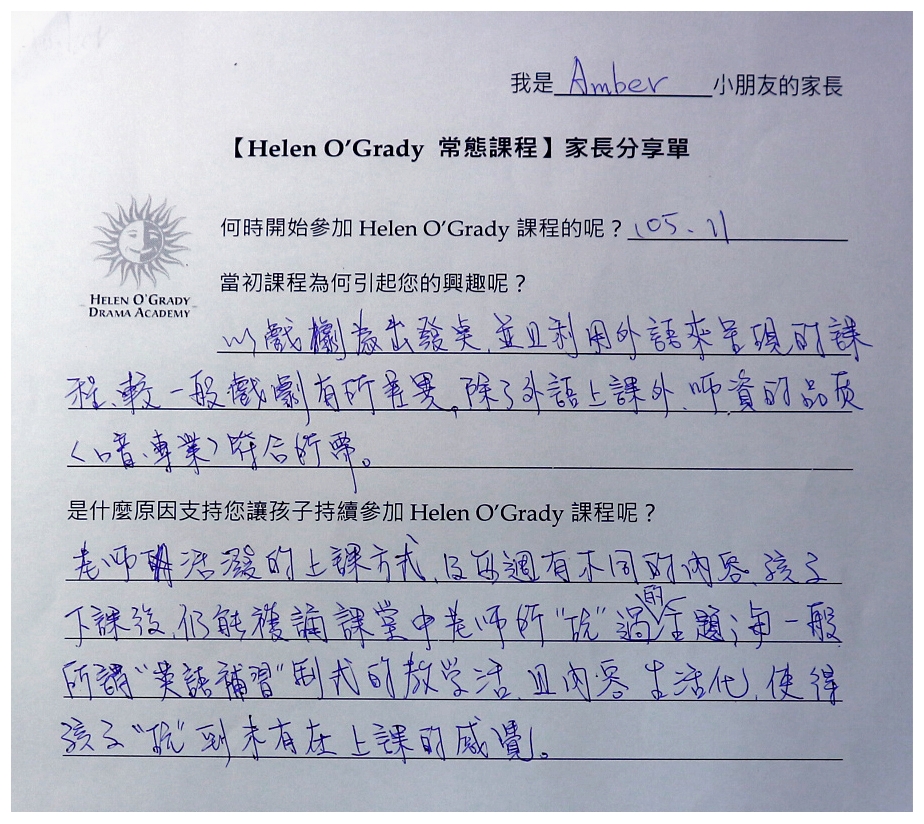 我是 Amber 小朋友的家長
【Helen O'Grady 常態課程】家長分享單
何時開始參加 Helen O'Grady 課程的呢？105.11
當初課程為何引起您的興趣呢？
HELEN O'GRADY
DRAMA ACADEMY
以戲劇為出發點、並且利用外語來呈現的課
程、較一般戲劇有所差異。除了外語上課外、師資的品質
〈口音、專業〉符合所需。
是什麼原因支持您讓孩子持續參加 Helen O'Grady 課程呢？
老師用活潑的上課方式、且每週有不同的內容、孩子
下課後、仍能複誦課堂中老師所"玩"過的主題；與一般
所謂"英語補習"制式的教学活、且內容生活化、使得
孩子"玩"到未有在上課的感覺。